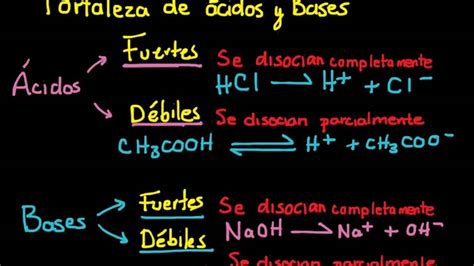 Fortaleza de ácidos y Bases
Fuertes Se disocian completamente
HCl ⟶ H⁺ + Cl⁻
Ácidos
Débiles Se disocian parcialmente
CH₃COOH ⇌ H⁺ + CH₃COO⁻
Fuertes Se disocian completamente
Bases
NaOH ⟶ Na⁺ + OH⁻
Débiles
Se disocian parcialmente